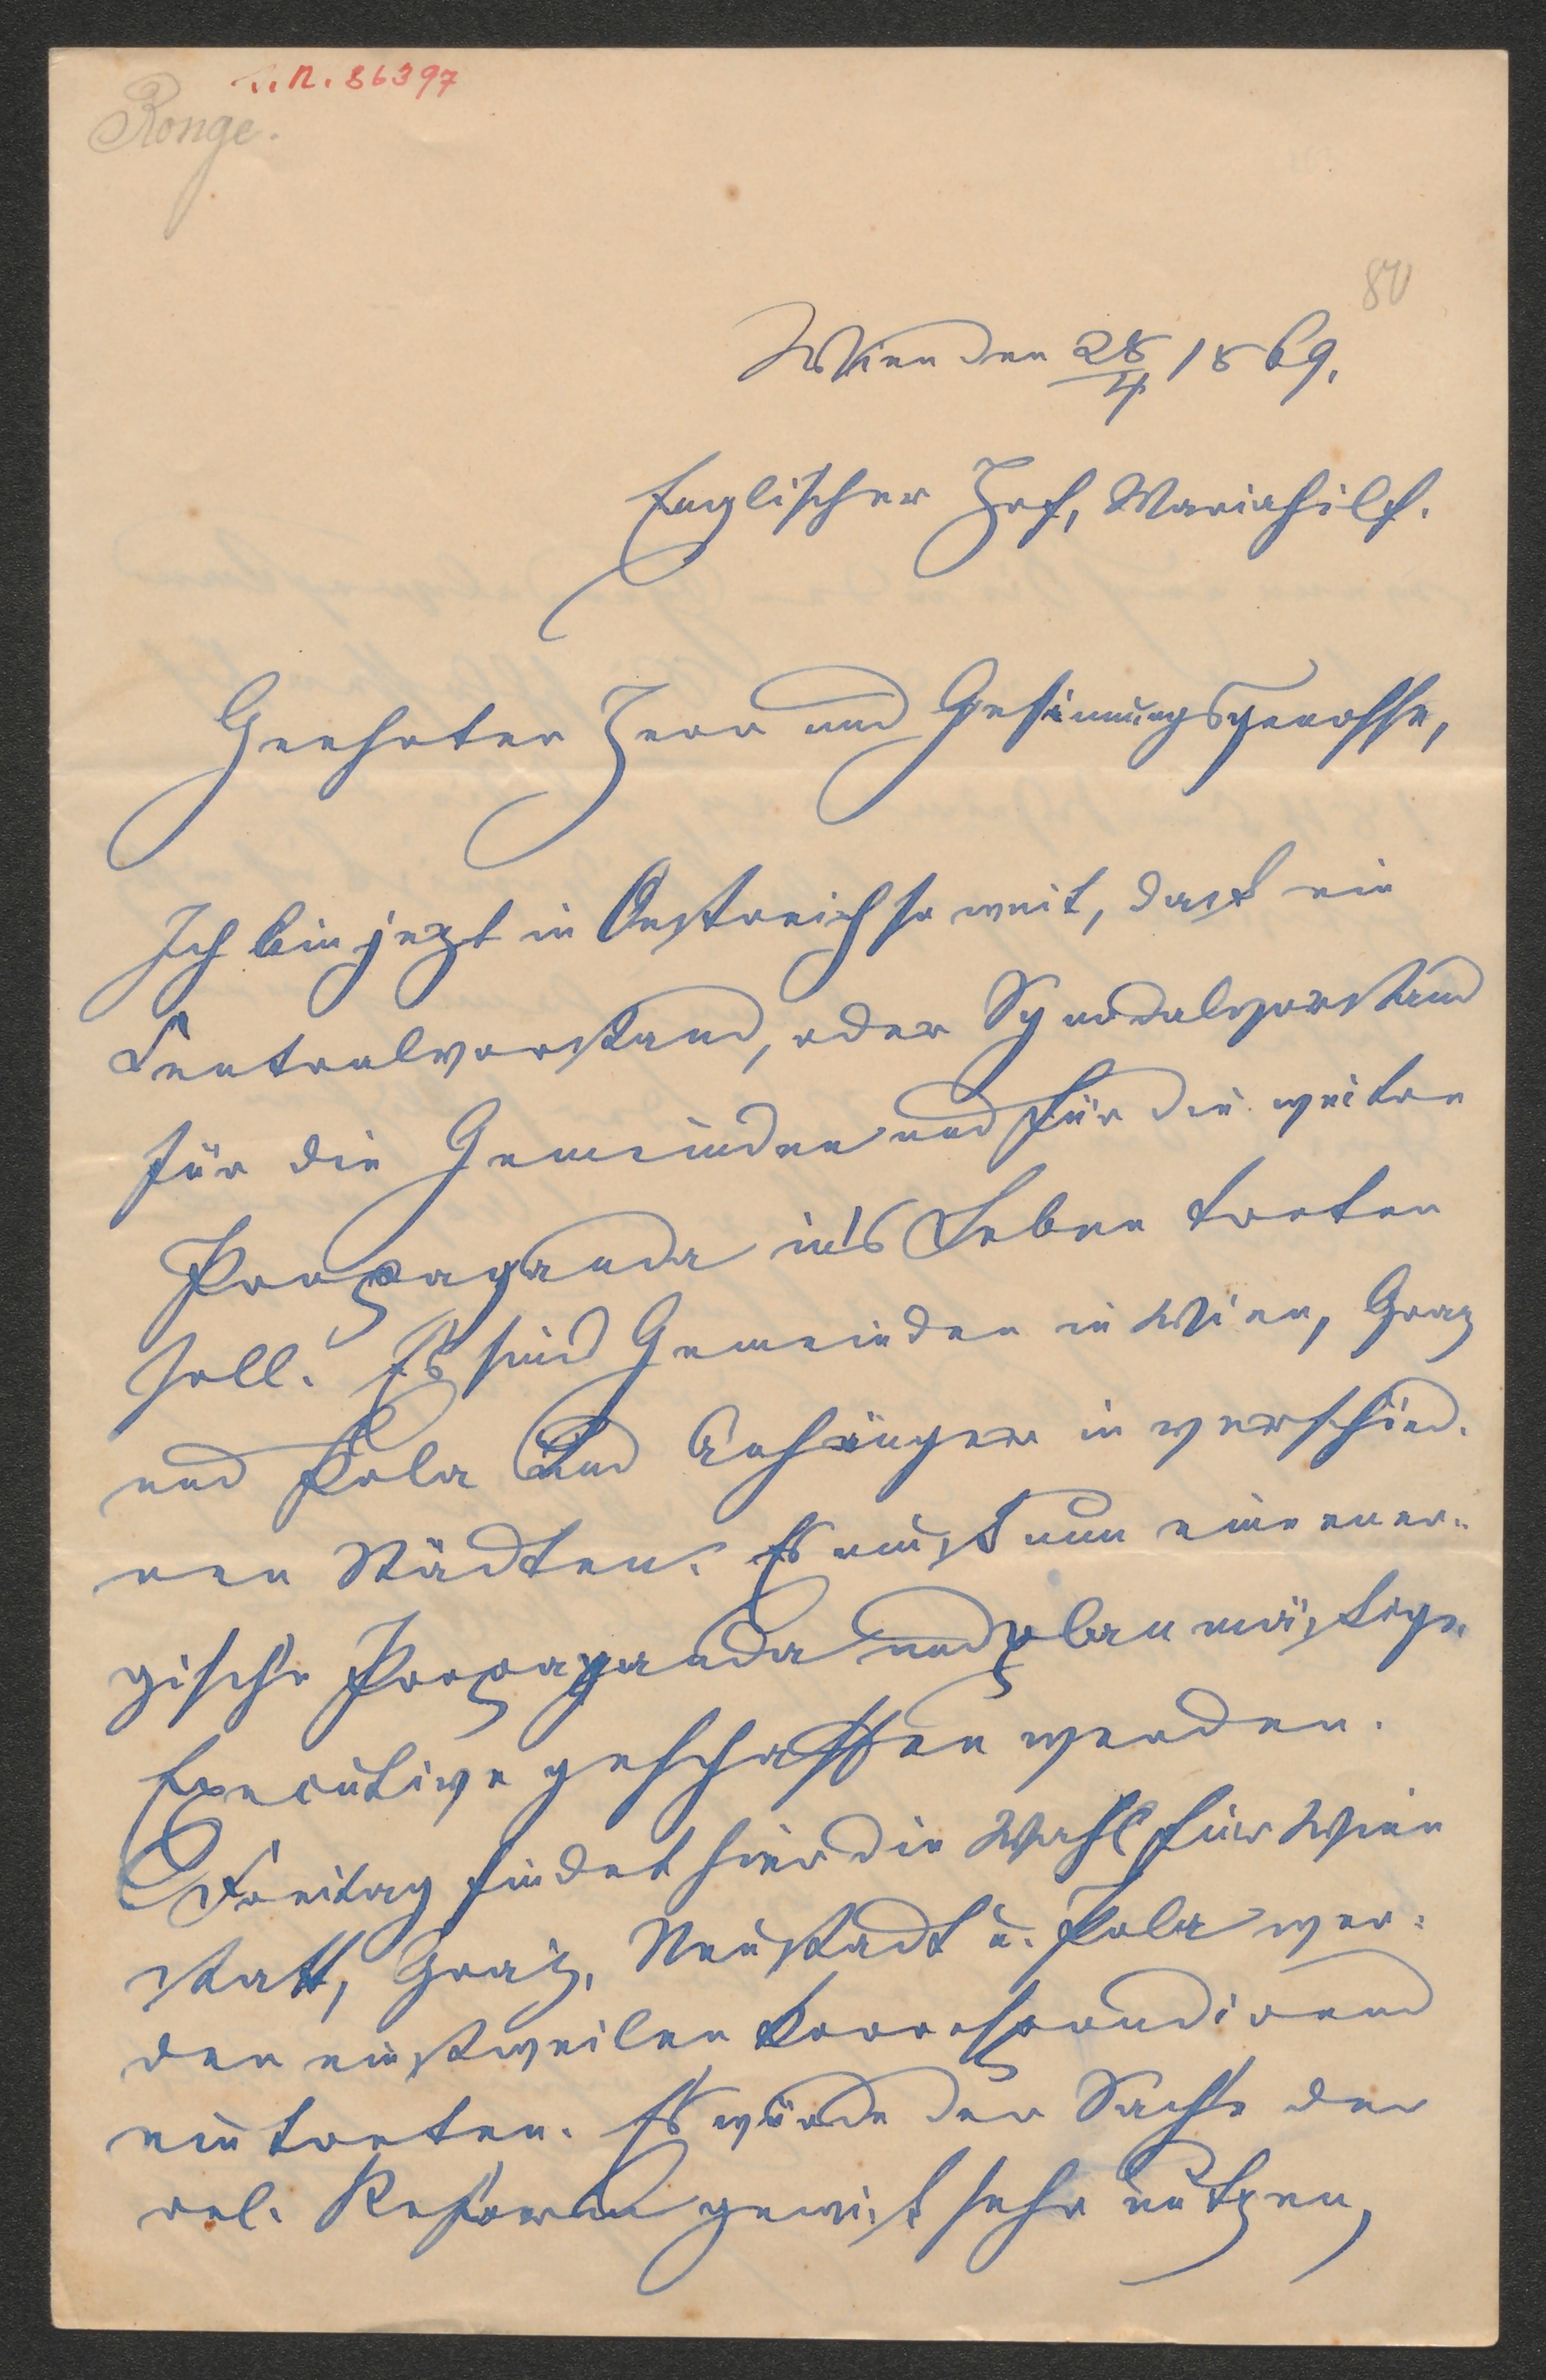 I. N. 86397
Ronge.
80
Wien den 28/4 1869.
Englischer Hof, Mariahilf.
Geehrter Herr und Gesinnungsgenosse,
Ich bin jezt in Oestreich so weit, dass ein
Centralvorstand, oder Synodalvorstand
für die Gemeinden und für die weitere
Propaganda in's Leben treten
soll. Es sind Gemeinden in Wien, Graz
und Pola und Anhänger in verschied.
nen Städten. Es muss nun eine ener-
gische Propaganda und planmässige
Executive geschaffen werden.
Freitag findet hier die Wahl für Wien
statt, Graz, Neustadt u. Pola wer-
den einstweilen korrespondirend
eintreten. Es würde der Sache der
rel. Reform gewiss sehr nützen,